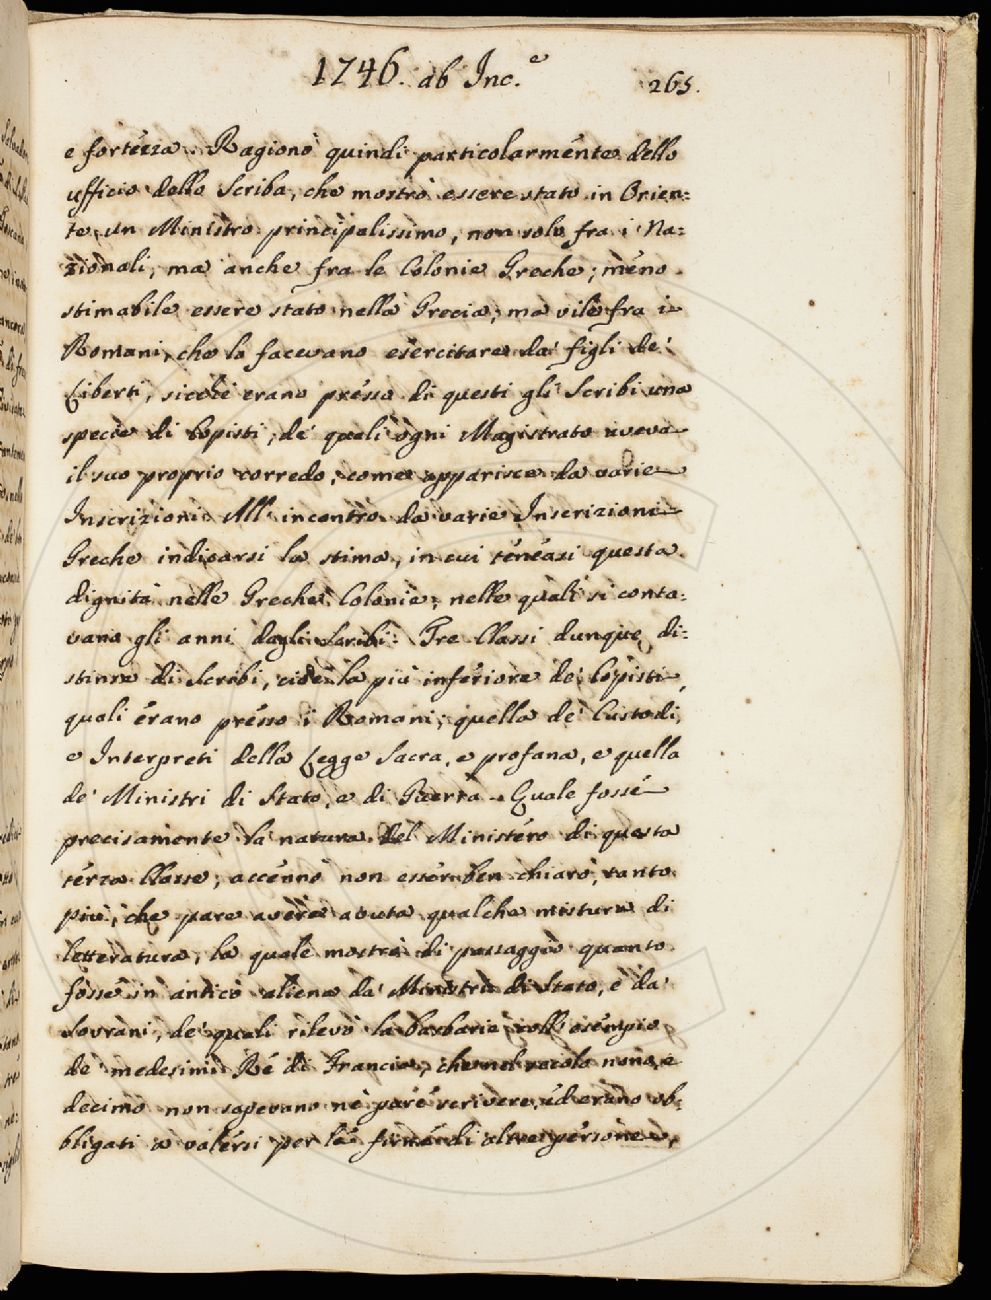 1746. ab Inc.e 265.
e fortezza. Ragionò quindi particolarmente dello
ufficio dello Scriba, che mostrò essere stato in Orien=
te un Ministro principalissimo, non solo fra i Na=
zionali, ma anche fra le Colonie Greche; méno
stimabile essere stato nella Grecia, ma vile fra i
Romani, che lo facevano esercitare da' figli de'
Liberti, sicché erano présso di questi gli Scribi una
specie di Copisti, de' quali ogni Magistrato aveva
il suo proprio corredo, come apparisce da varie
Inscrizioni. All' incontro da varie Inscrizioni
Greche indicarsi la stima, in cui tenéasi questa
dignità nelle Greche Colonie, nelle quali si conta=
vano gli anni dagli Scribi. Tre Classi dunque di=
stinse di Scribi, cioè la più inferiore de' Copisti,
quali érano présso i Romani; quella de' Custodi,
e Interpreti della Legge Sacra, e profana, e quella
de' Ministri di Stato, e di Guerra. Quale fosse
precisamente la natura del Ministéro di questa
térza Classe, accénnò non essér ben chiaro, tanto
più, che pare avere avuta qualche mistura di
letteratura, la quale mostrò di passaggio quanto
fosse in antico aliena da' Ministri di Stato, e da'
Sovrani, de' quali rilevò la barbarie coll' esémpio
de' medesimi Ré di Francia, che nel secolo nono, e
decimo non sapevano né pure scrivere, ed erano ob=
bligati a valérsi per le firme di altre persone,